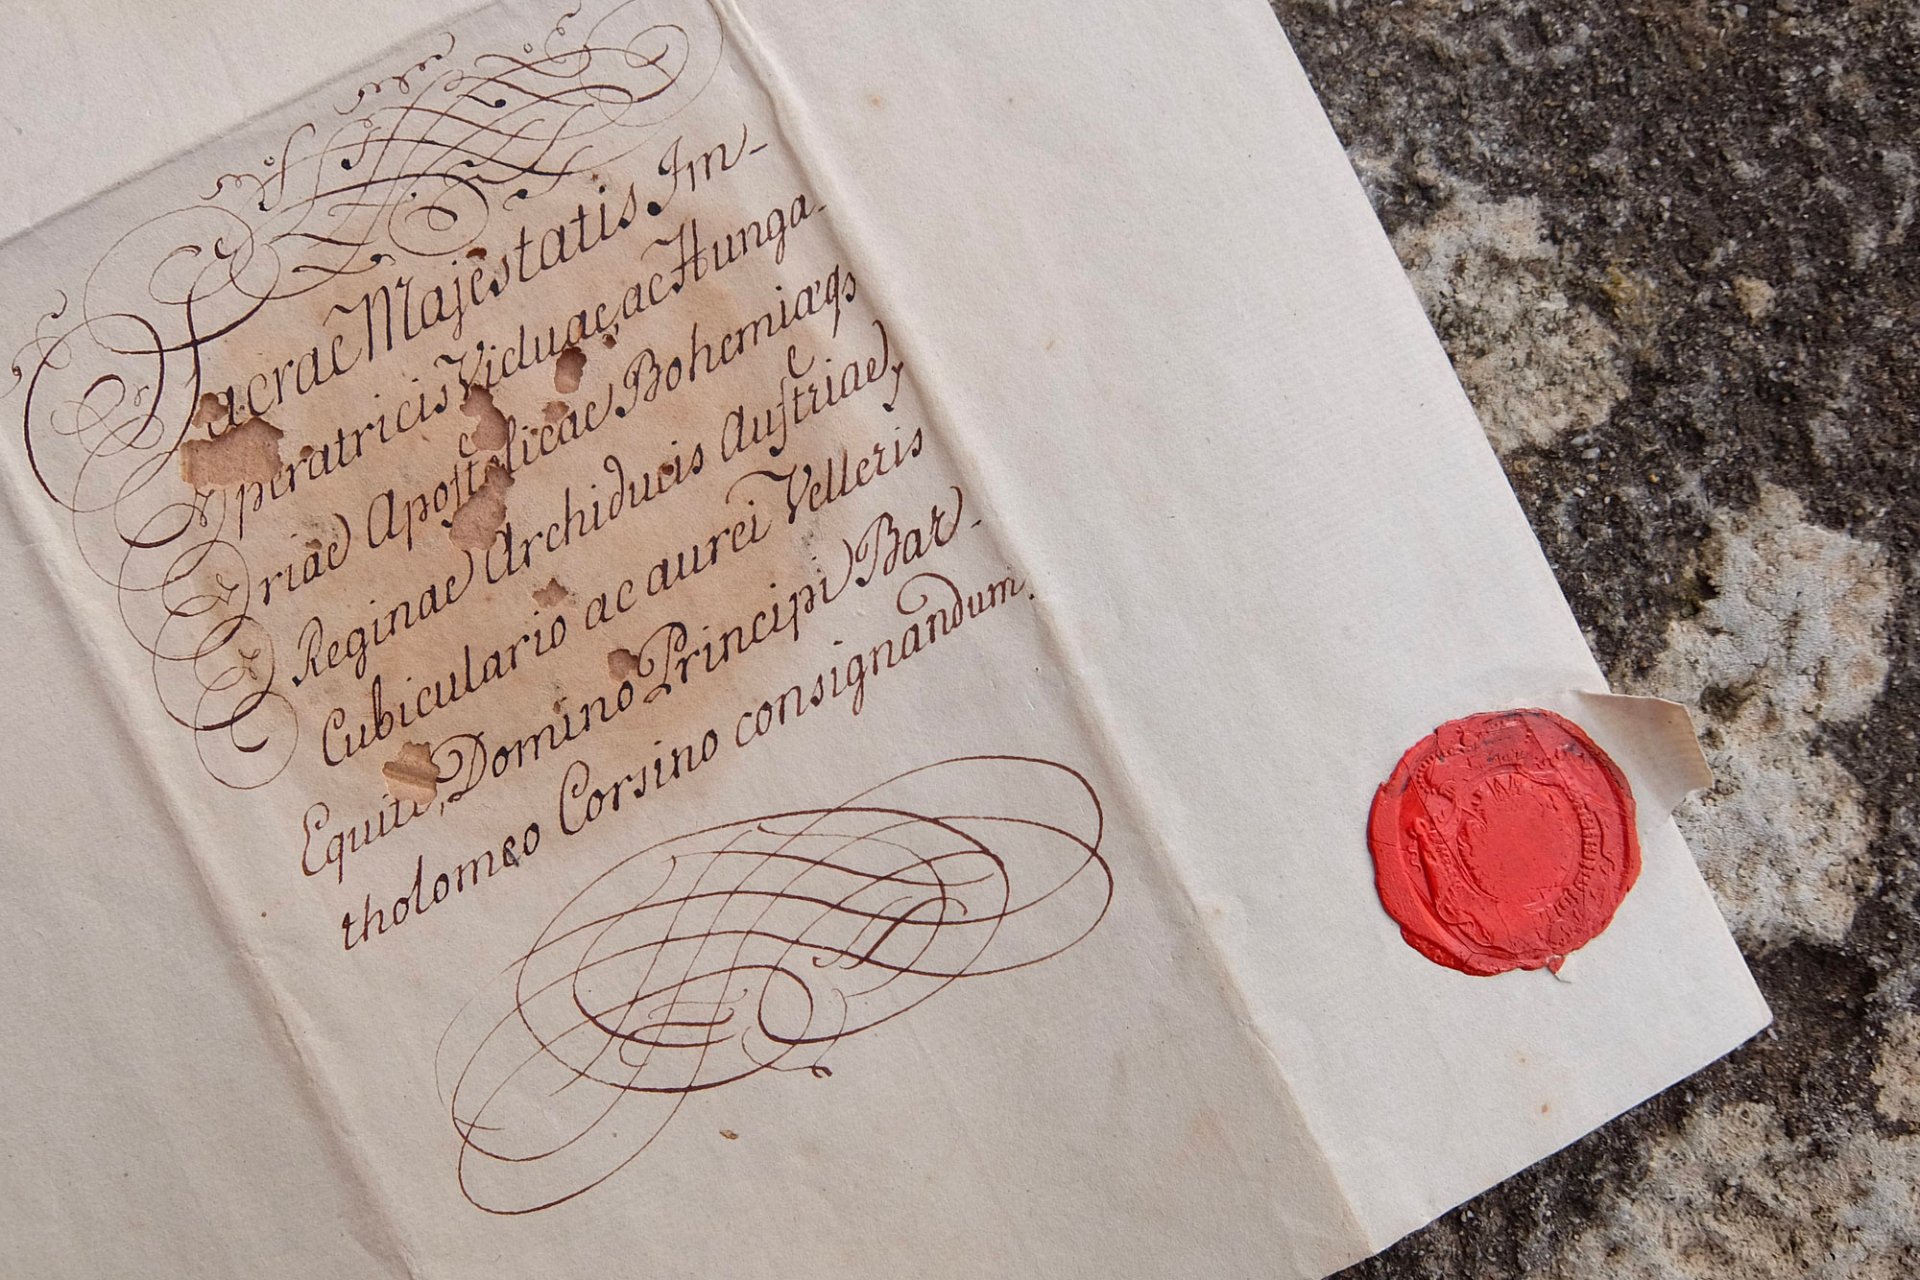 Sacrae Majestatis Im-
peratricis Viduae, ac Hunga-
riae Apostolicae Bohemiaeqs
Reginae Archiducis Austriae,
Cubiculario ac aurei Velleris
Equiti, Domino Principi Bar-
tholomeo Corsino consignandum.